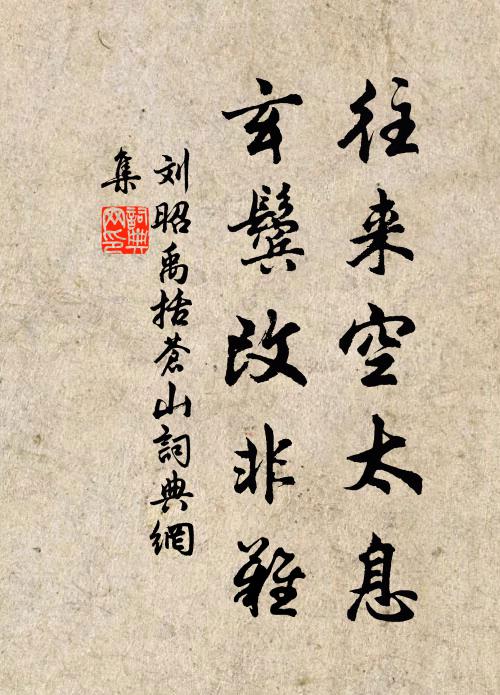 往来空太息
玄鬓改非难
刘昭禹括苍山詞典網
集
詞典
网印